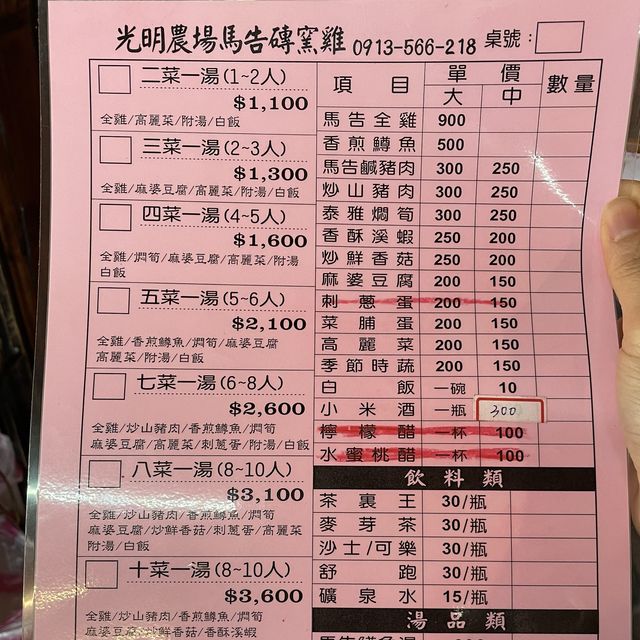 光明農場馬告磚窯雞 0913-566-218 桌號:
二菜一湯(1~2人)
$1,100
全雞/高麗菜/附湯/白飯
三菜一湯(2~3人)
$1,300
全雞/麻婆豆腐/高麗菜/附湯/白飯
四菜一湯(4~5人)
$1,600
全雞/燜筍/麻婆豆腐/高麗菜/附湯
白飯
五菜一湯(5~6人)
$2,100
全雞/香煎鱒魚/燜筍/麻婆豆腐
高麗菜/附湯/白飯
七菜一湯(6~8人)
$2,600
全雞/炒山豬肉/香煎鱒魚/燜筍
麻婆豆腐/高麗菜/刺蔥蛋/附湯/白飯
八菜一湯(8~10人)
$3,100
全雞/炒山豬肉/香煎鱒魚/燜筍
麻婆豆腐/炒鮮香菇/刺蔥蛋/高麗菜
附湯/白飯
十菜一湯(8~10人)
$3,600
全雞/炒山豬肉/香煎鱒魚/燜筍
麻婆豆腐/炒鮮香菇/香酥溪蝦
項目 單價 數量
大 中
馬告全雞 900
香煎鱒魚 500
馬告鹹豬肉 300 250
炒山豬肉 300 250
泰雅燜筍 300 250
香酥溪蝦 250 200
炒鮮香菇 250 200
麻婆豆腐 200 150
刺蔥蛋 200 150
菜脯蛋 200 150
高麗菜 200 150
季節時蔬 200 150
白飯 一碗 10
小米酒 一瓶 300
檸檬醋 一杯 100
水蜜桃醋 一杯 100
飲料類
茶裏王 30/瓶
麥芽茶 30/瓶
沙士/可樂 30/瓶
舒跑 30/瓶
礦泉水 15/瓶
湯品類